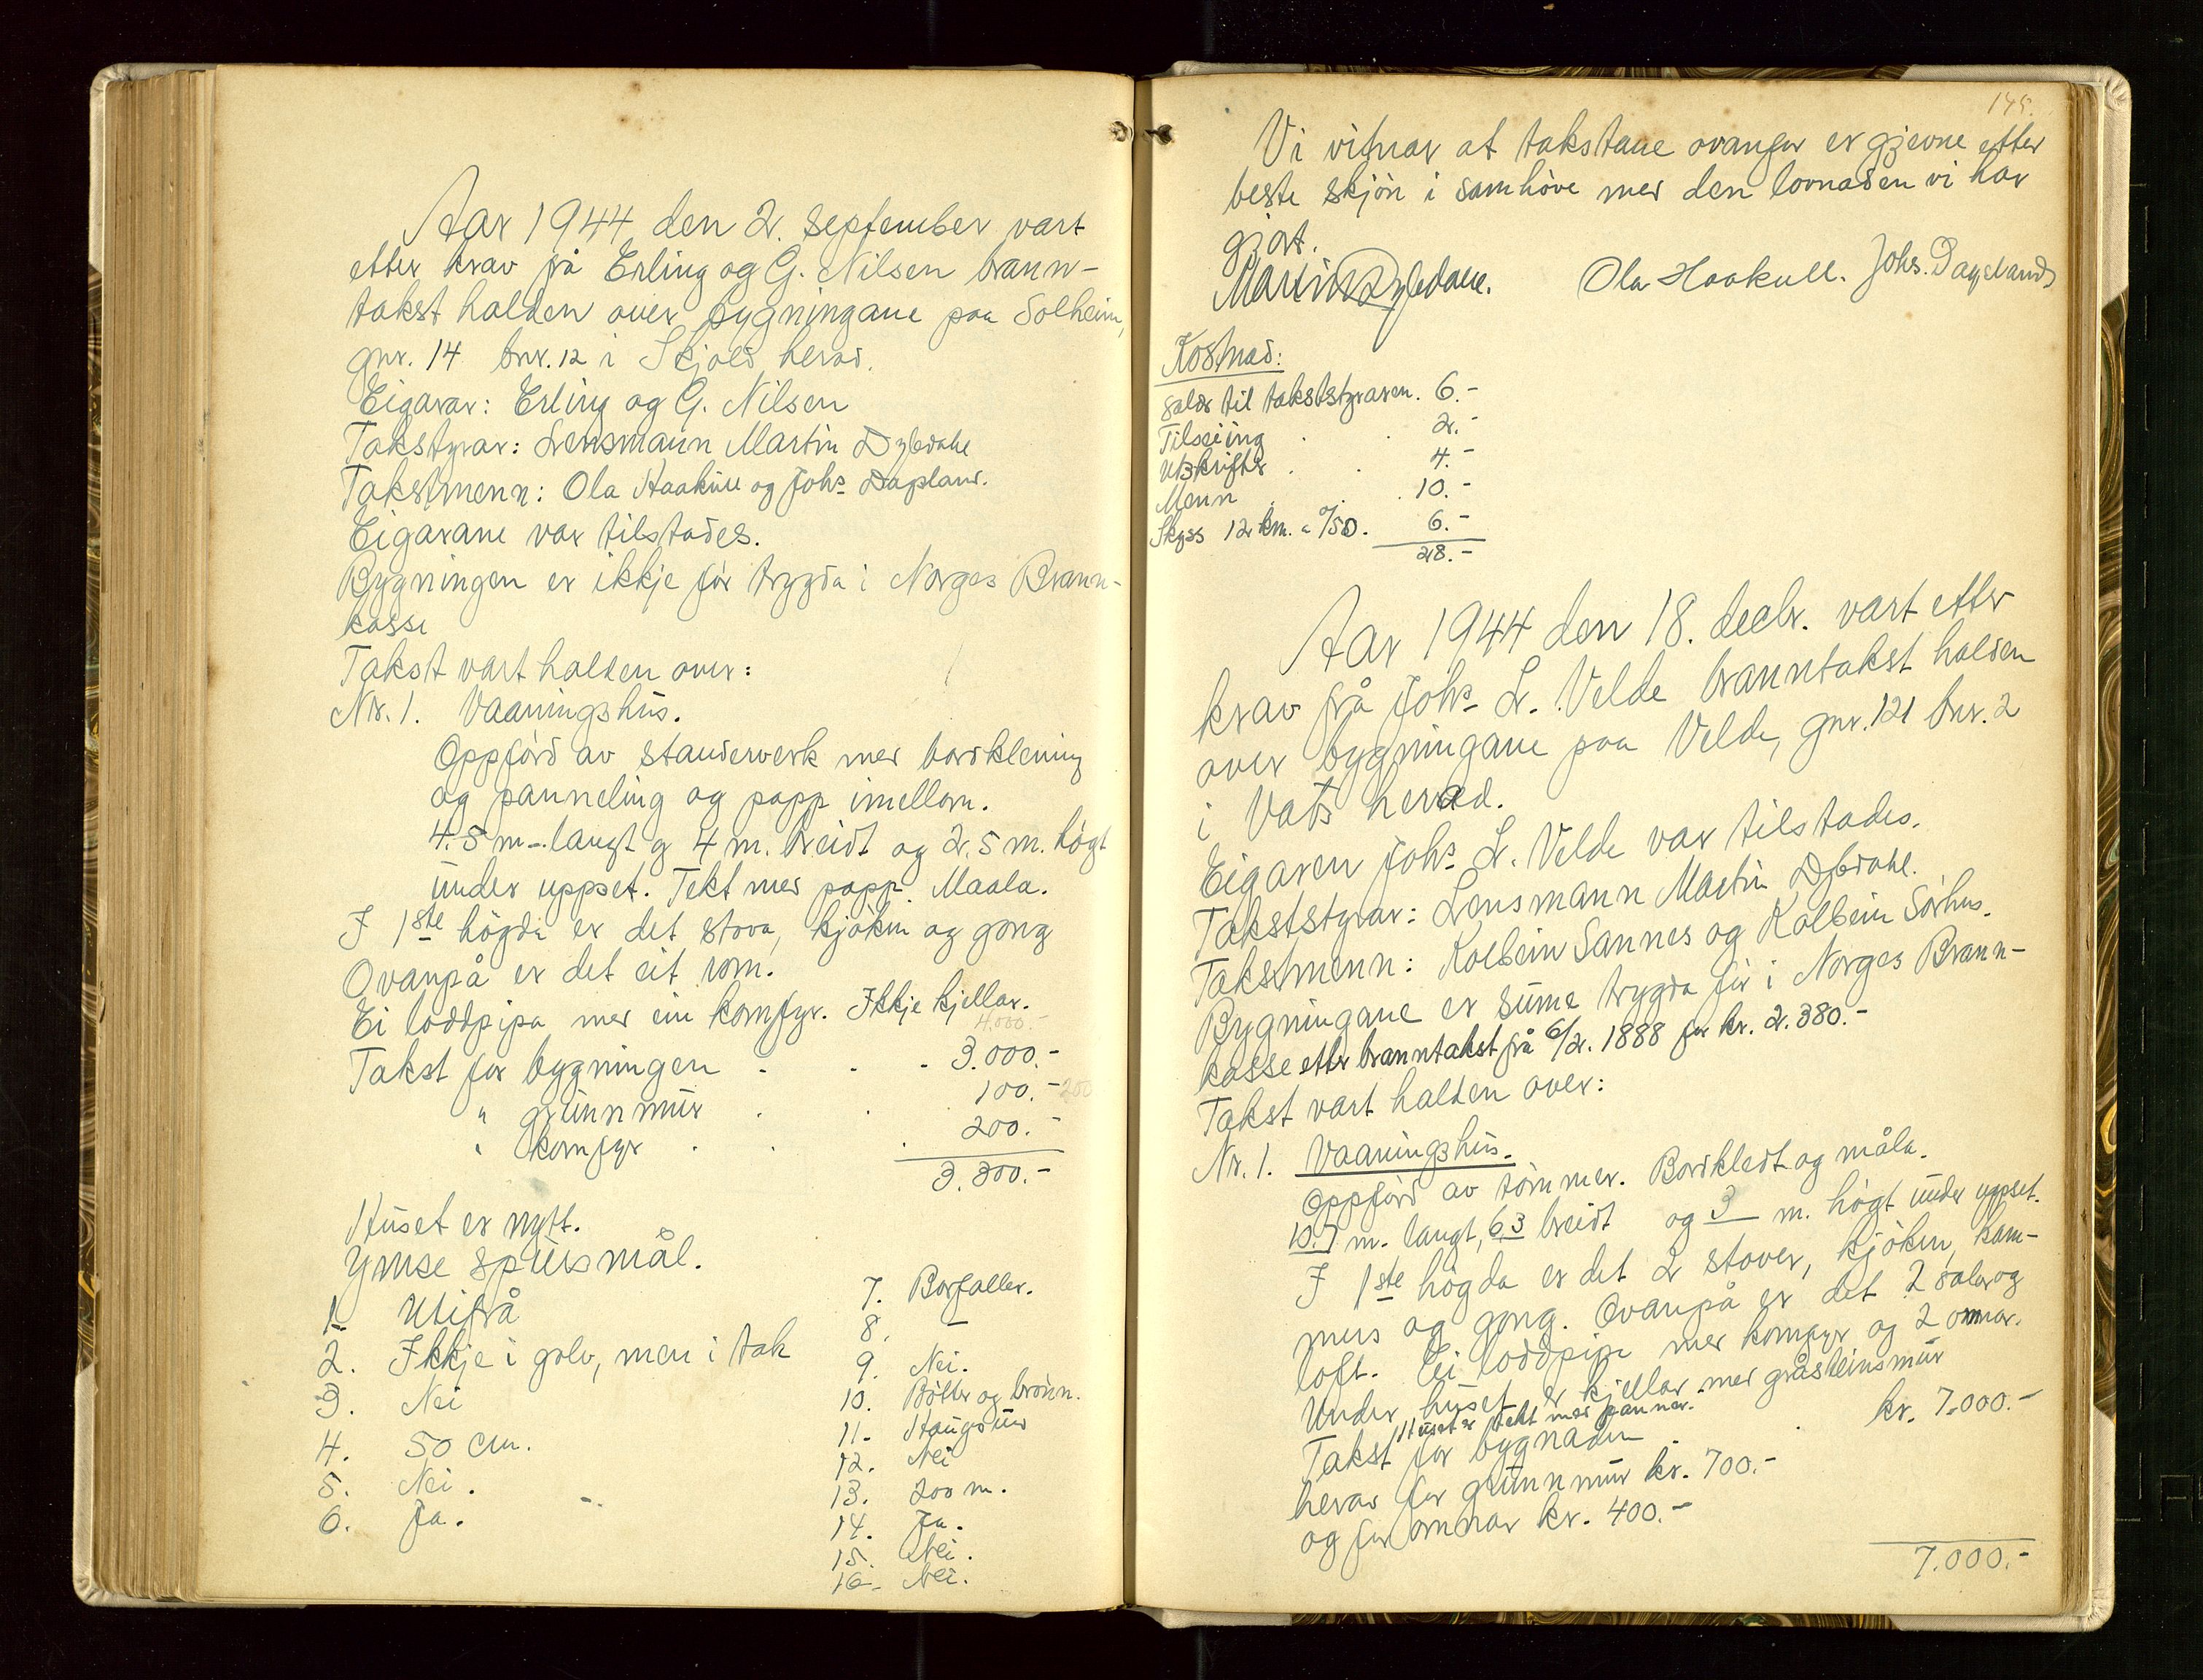 Aar 1944 den 2. september vart
etter krav frå Erling og G. Nilsen brann-
takst halden over bygningane paa Solheim,
gnr. 14 bnr. 12 i Skjold herad.
Eigarar: Erling og G. Nilsen
Takstyrar: Lensmann Martin Dybdahl
Takstmenn: Ola Haakull og Johs Dagsland.
Eigarane var tilstades.
Bygningen er ikkje för trygda i Norges Brann-
kasse
Takst vart halden over:
Nr. 1. Vaaningshus.
Oppförd av standerverk med bordkledning
og panneling og papp imellom.
4.5 m. langt og 4 m. breidt og 2.5 m. högt
under uppset. Tekt med papp. Maala.
I 1ste högda er det stova, kjöken og gong
Ovanpå er det eit rom.
Ei loddpipa med ein komfyr. Ikkje kjellar.
4.000.-
Takst for bygningen . . . 3.000.-
" grunnmur . . 100.- 200
" komfyr . . . 200.-
3.300.-
Huset er nytt.
Ymse spursmål.
1. Utifrå
2. Ikkje i golv, men i tak
3. Nei
4. 50 cm.
5. Nei.
6. Ja.
7. Bortfaller.
8. -
9. Nei.
10. Bötter og brönn.
11. Haugsund
12. Nei
13. 200 m.
14. Ja.
15. Nei.
16. Nei.
145.
Vi vitnar at takstane ovanfor er gjevne etter
beste skjön i samhöve med den lovnaden vi har
gjort.
Martin Dybdahl. Ola Haakull. Johs. Dagsland
Kostnad:
Salär til takststyraren. 6.-
Tilseiing . . 2.-
Utskrifter . . 4.-
Menn . . . 10.-
Skyss 12 km. a 0/50. 6.-
28.-
Aar 1944 den 18. decbr. vart etter
krav frå Johs L. Velde branntakst halden
over bygningane paa Velde, gnr. 121 bnr. 2
i Vats herad.
Eigaren Johs L. Velde var tilstades.
Takststyrar: Lensmann Martin Dybdahl.
Takstmenn: Kolbein Sannes og Kolbein Sörhus.
Bygningane er sume trygda för i Norges Brann-
kasse etter branntakst frå 6/2. 1888 for kr. 2.380.-
Takst vart halden over:
Nr. 1. Vaaningshus.
Oppförd av tömmer. Bordkledt og måla.
10.7 m. langt, 6.3 breidt og 3 m. högt under uppset.
I 1ste högda er det 2 stover, kjöken, kam-
mers og gong. Ovanpå er det 2 saler og
loft. Ei loddpipe med komfyr og 2 omnar.
Under huset er kjellar med gråsteinsmur
Huset er tekt med panner.
Takst for bygnaden . . kr. 7.000.-
herav for grunnmur kr. 700.-
og for omnar kr. 400.-
7.000.-